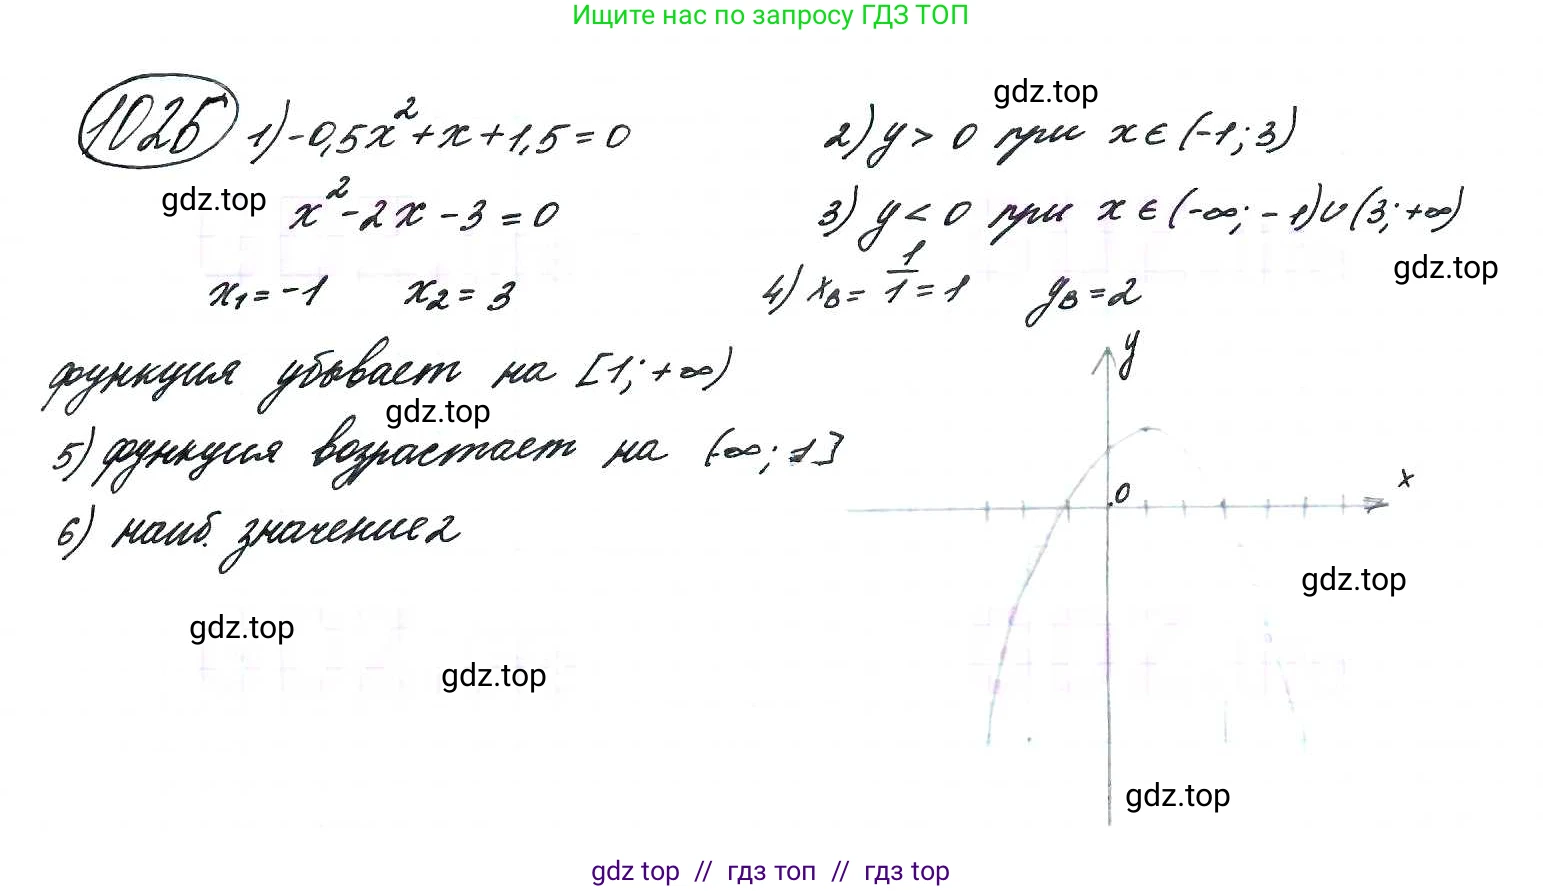 Ищите нас по запросу ГДЗ ТОП
1025 1) -0,5x² + x + 1,5 = 0
x² - 2x - 3 = 0
x₁ = -1 x₂ = 3
gdz.top
gdz.top
2) y > 0 при x ∈ (-1; 3)
3) y < 0 при x ∈ (-∞; -1) ∪ (3; +∞)
gdz.top
4) xв = 1/1 = 1 yв = 2
функция убывает на [1; +∞)
gdz.top
5) функция возрастает на (-∞; 1]
6) наиб. значение 2
y
x
0
gdz.top
gdz.top
gdz.top
gdz.top
gdz top // гдз топ // гдз top